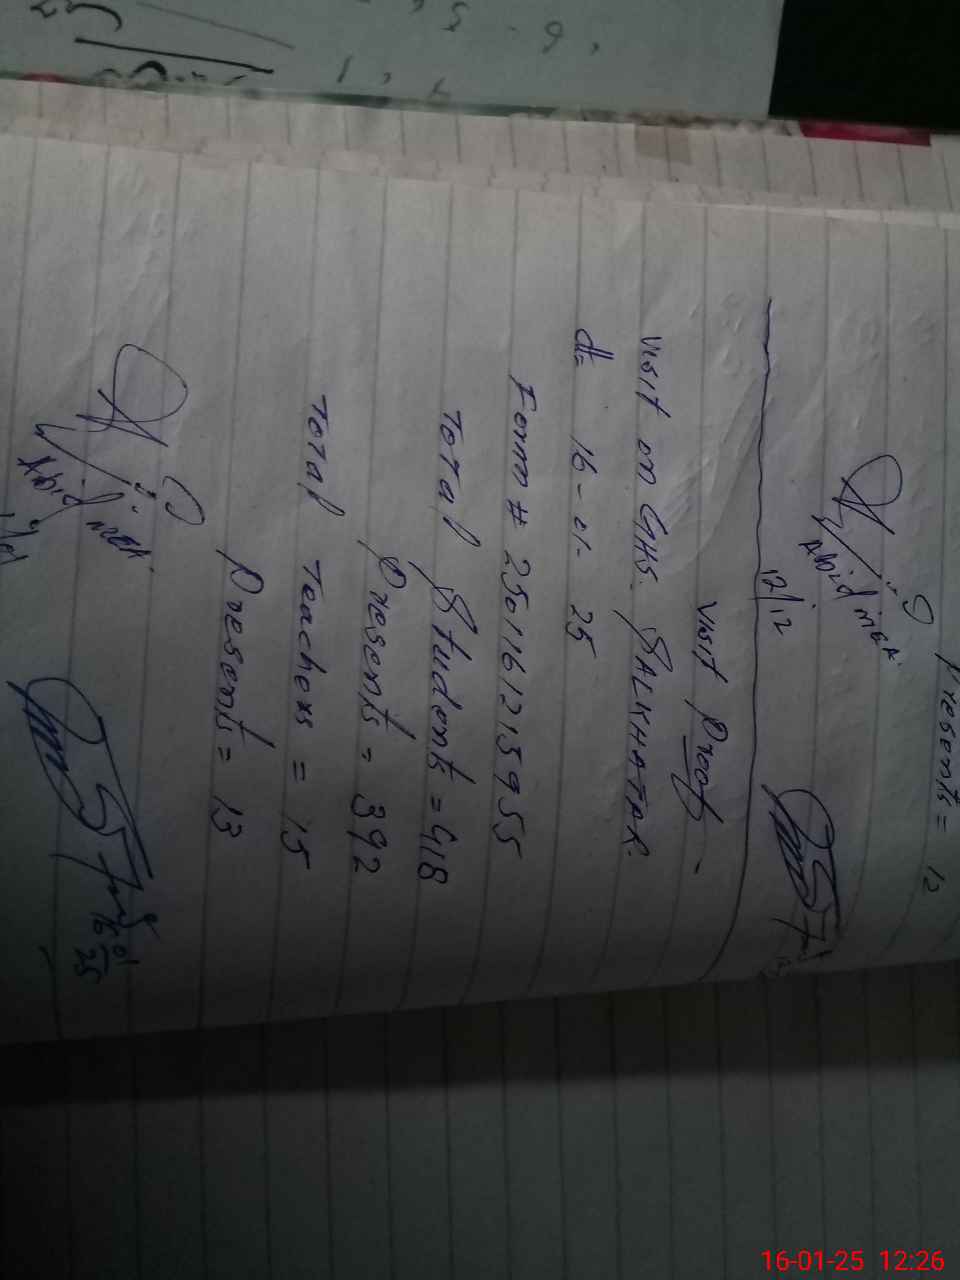 Presents = 12
Abid MEA.
12/12
Visit Proof -
Visit on GHS. SALKHATAR.
dt= 16-01-25
Form # 25011612159955
Total Students = 418
Presents = 392
Total Teachers = 15
Presents = 13
Abid MEA.
16/01/25
16-01-25 12:26